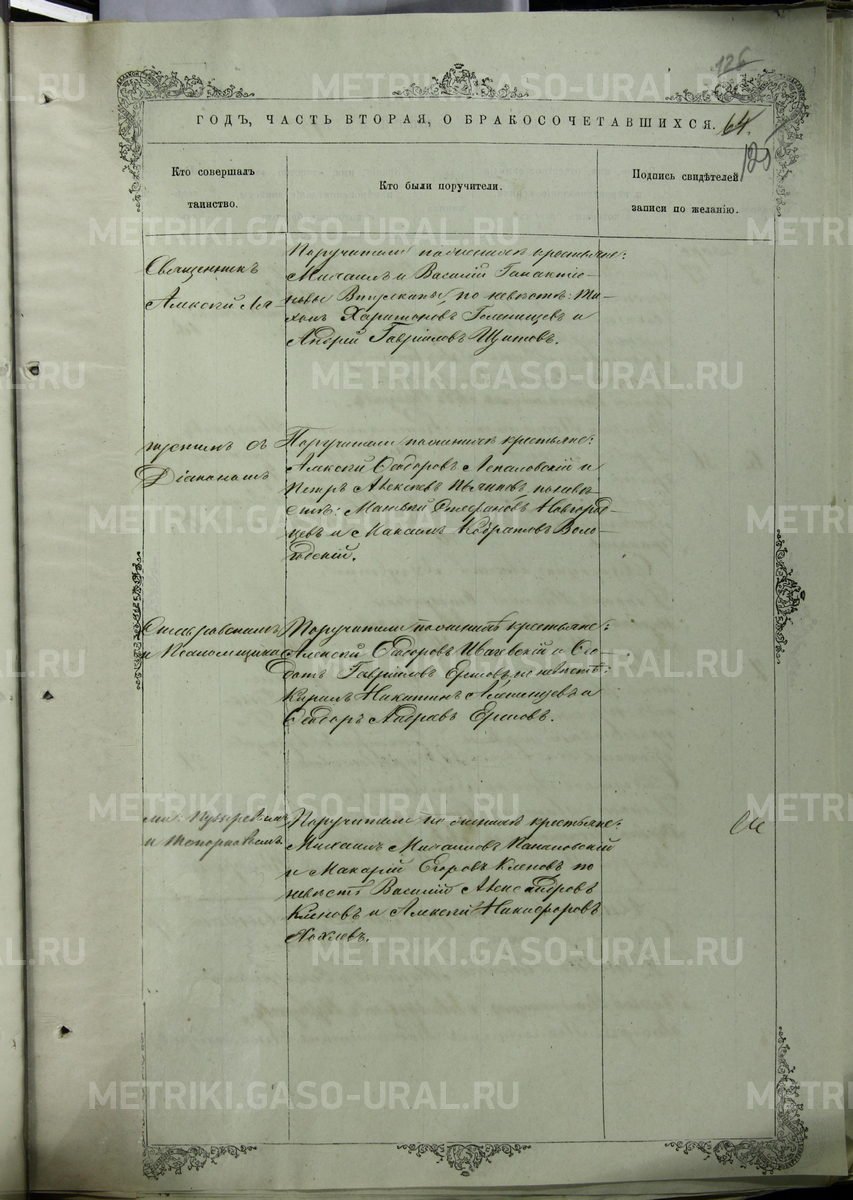 126
ГОДЪ, ЧАСТЬ ВТОРАЯ, О БРАКОСОЧЕТАВШИХСЯ. 64.
120
Кто совершалъ
таинство.
Кто были поручители.
Подпись свидѣтелей
записи по желанію.
Священникъ
Алексѣй
Поручители по женихѣ крестьяне:
Михаилъ и Василій Галактіо-
новы по невѣстѣ: Ти-
хонъ Харитоновъ Голенищевъ и
Андрей Гавріиловъ Щитовъ.
съ
Діакономъ
Поручители по женихѣ крестьяне:
Алексѣй Ѳедоровъ и
Петръ Алексѣевъ по невѣ-
стѣ: Матвѣй Стефановъ Новгород-
цевъ и Максимъ Кодратовъ Воло-
годскій.
Ставровскимъ
и Псаломщика
Поручители по женихѣ крестьяне:
Алексѣй Ѳедоровъ и Ѳе-
дотъ Гавріиловъ по невѣстѣ:
Кирилъ Никитинъ и
Ѳедоръ Ершовъ.
ми:
и Топорковымъ
Поручители по женихѣ крестьяне:
Михаилъ Михаиловъ
и Макарій Егоровъ Кленовъ по
невѣстѣ Василій Александровъ
Кленовъ и Алексѣй Никифоровъ
Яковлевъ.
METRIKI.GASO-URAL.RU